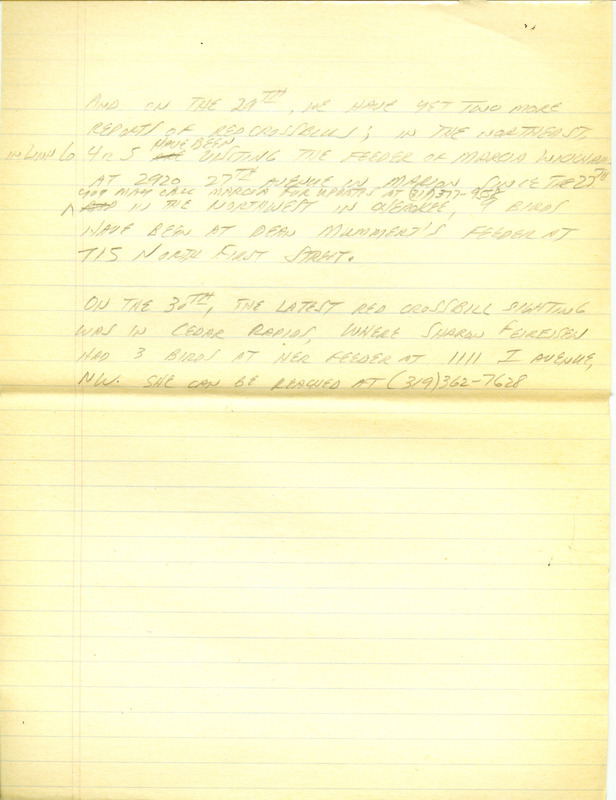 AND ON THE 29TH, WE HAVE YET TWO MORE
REPORTS OF RED CROSSBILLS; IN THE NORTHEAST,
IN LINN Co 4 TO 5 HAVE BEEN VISITING THE FEEDER OF MARCIA
AT 2920 27TH AVENUE IN MARION SINCE THE 27TH
YOU MAY CALL MARCIA FOR UPDATES AT
AND IN THE NORTHWEST IN CHEROKEE, 9 BIRDS
HAVE BEEN AT DEAN MUMMERT'S FEEDER AT
715 NORTH FIRST STREET.
ON THE 30TH, THE LATEST RED CROSSBILL SIGHTING
WAS IN CEDAR RAPIDS, WHERE SHARON FEIREISEN
HAD 3 BIRDS AT HER FEEDER AT 1111 I AVENUE,
NW. SHE CAN BE REACHED AT (319)362-7628